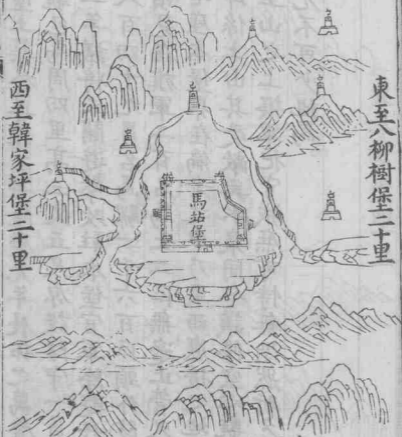 東至八柳樹堡二十里
馬站堡
西至韓家坪堡二十里